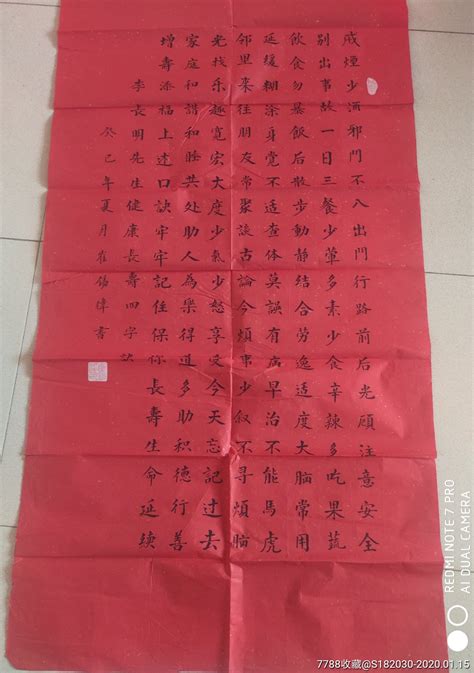 戒煙少酒邪門不入出門行路前后光顧注意安全
别出事故一日三餐少葷多素少食辛辣多吃果蔬
飲食勿暴飯后散步動静結合勞逸適度大腦常用
延緩糊涂身覺不适查体莫誤有病早治不能馬虎
邻里来往朋友常聚談古論今煩事少叙不尋煩腦
光找乐趣寬宏大度少氣少愁享受今天忘記过去
家庭和諧和睦共处助人為樂得道多助积德行善
增壽添福上述口訣牢牢記住保你長壽生命延续
李長明先生健康長壽四字訣
癸巳年夏月崔書
REDMI NOTE 7 PRO
AI DUAL CAMERA
7788收藏@S182030-2020.01.15